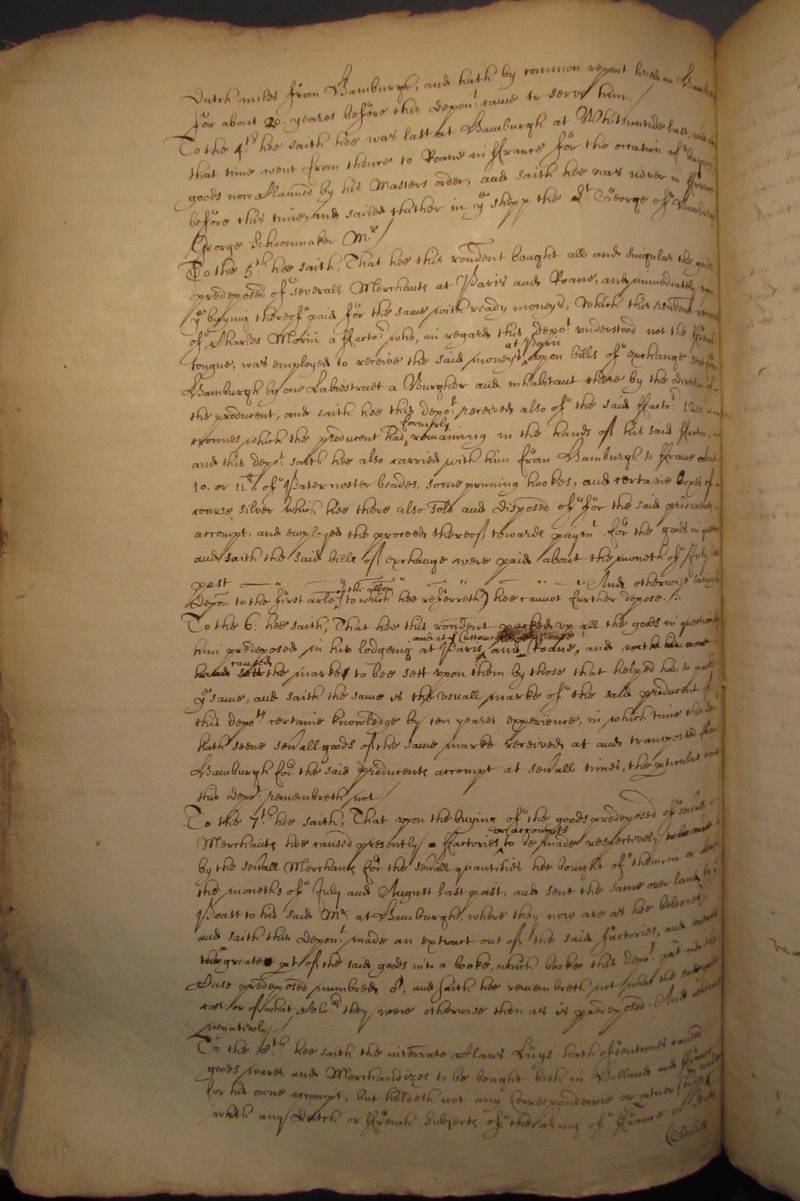 Dutch miles from Hamburgh, and hath by common repont lived in Hamburgh
for about 20. yeares before this depont. came to serve him./
To the 4th. hee saith hee was last at Hamburgh at Whitsuntide last, and
that time went from thence to Roane in ffrance for the occasion of buying
goods now claimed by his Masters order, and saith hee was never in ffrance
before this time, and sailed thither in ye. shipp the St. George of Hamburgh
George Schoonmaker Mr./
To the 5.th hee saith, That hee this rondent bought all and singular the goods
predeposed of severall Merchants at Paris and Roane, and immediately upon
ye. buying thereof paid for the same with ready moneys, which this rendent received
of Charles Morin a ffactor. who, in regard this depot. understood not the ffrench
tongue, was employed to receive the said moneys at Paris upon bills of exchange sent from
Hamburgh by one Labistraet a Burgher and inhabitant there by the direction of
the producent, and saith hee this depot. received also of the said ffactor. 120
crownes which the producent had formerly remaining in the hands of his said ffactor,
and this depot. saith hee also carried with him from Hamburgh to ffrance about
10. or 11li. of Pater noster beades, some pruning hookes, and certaine of
coarse silver which hee there also sold and disposed of for the said producents
accompt, and employed the proceed thereof towards paymt. for the goods in question
and saith the said bills of exchange were paid about the moneth of July last
past And otherwise saving his
Depon to the first arle. of the allon (to which hee referreth) hee cannot further depose./:
To the 6: hee saith, That hee this rondent packed up all the goods in question
him predeposed in his lodgeing at Paris, and at ye Custome house Roane, and
caused the marke to bee sett upon them by those that helped him to pack
ye. same, and saith the same is the usuall marke of the said producent of
this depots. certaine knowledge by ten yeares experience, in which time this depot.
hath seene severall goods of the same marke received at and transported from
Hamburgh for the said producents accompt at severall times, the particulars
this depot. remembreth not./
To the 7th. hee saith, That upon the buying of the goods predeposed of severall
Merchants hee caused presently ffactories or accompts to be made respectively
by the severall Merchants for the severall quantities hee bought of them in
the moneths of July and August last past, and sent the same over land by
Poast to his said Mr. at Hamburgh, where they now are as hee beleeveth
and saith this depont. made an extract out of the said ffactories, and entred
the greater pt of the said goods into a booke, which booke this depot. put into the
Case predeposed numbred 8, and saith hee remembreth not what the severall
cost or of what value they were otherwise then as is predeposed. And otherwise
negatively./
To the 8.th hee saith the interrate Claus Luys hath oftentimes caused
goods wares and Merchandizes to be bought both in Holland and ffrance
for his owne accompt, but holdeth not any Correspondence or
with any Dutch or ffrench Subjects of the King of ffrance or